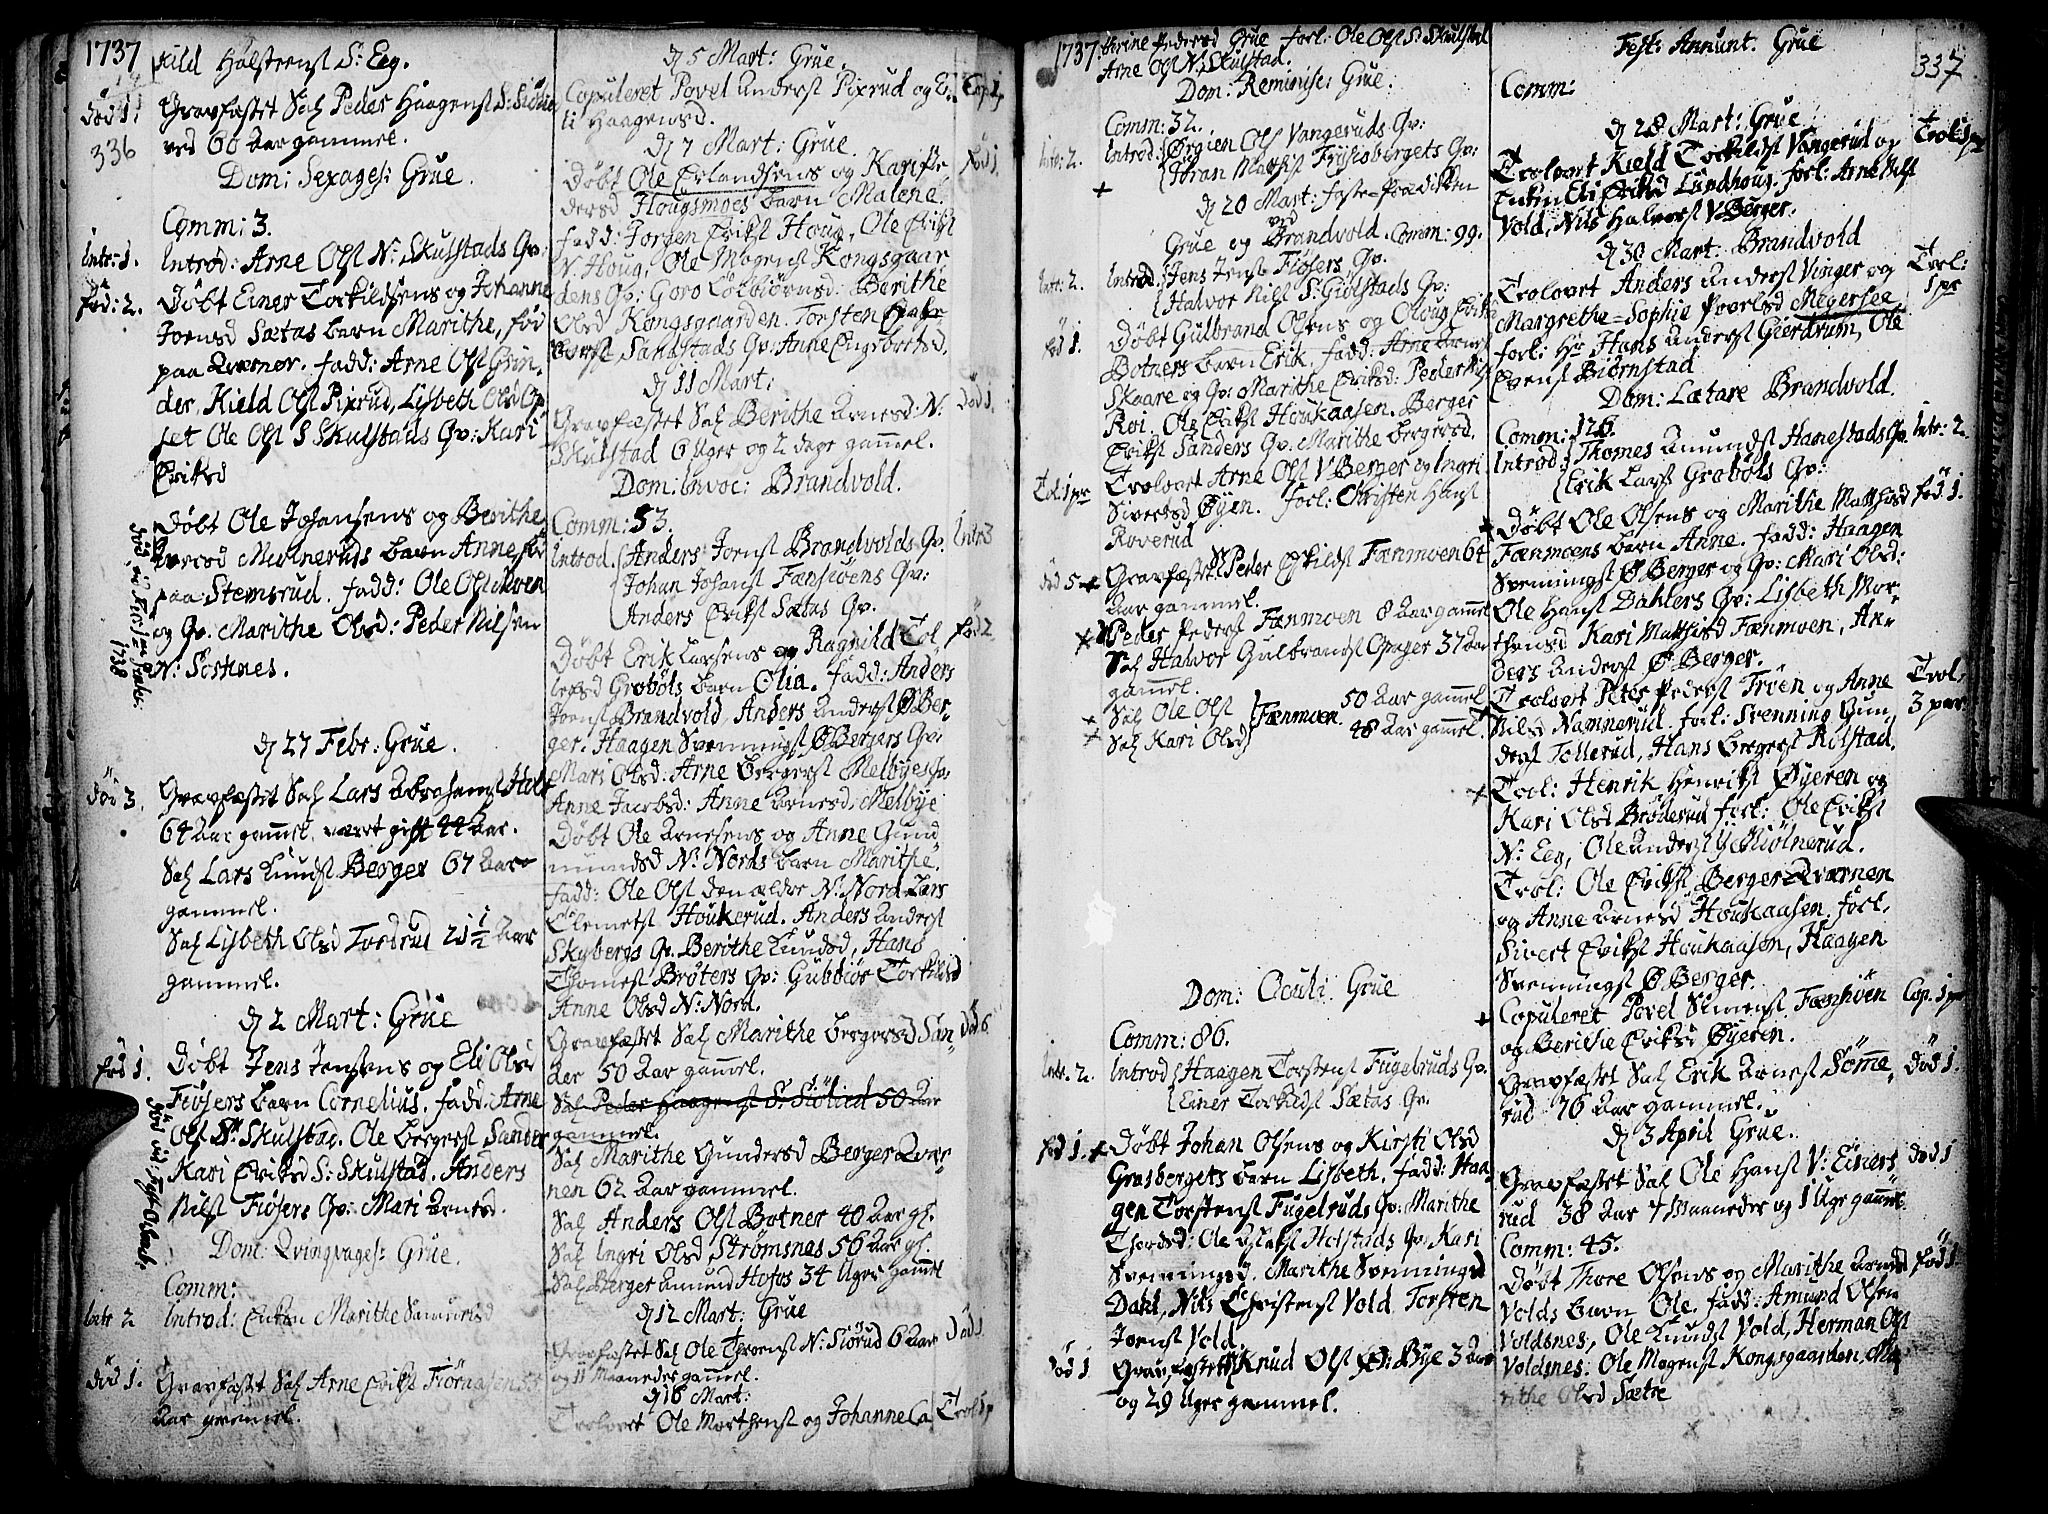 1737
Kild Holsteensl S: Eeg.
Død 1.
Gravfæstet Sal Peder Haagensl S: Siølie
336
ved 60 Aar gammel.
Dom: Sexages: Grue.
Comm: 3.
Intr: 1.
Introd: Arne Olsl N: Skulstads Qv:
Fød: 2.
Døbt Einer Torkildsens og Johanne
Joensd Sætas barn Marithe, fød
paa Qværner. Fadd: Arne Olsl Grin-
der, Kield Olsl Pixrud, Lisbeth Olsd Op-
set Ole Olsl S Skulstads Qv: Kari
Eriksd
Døbt Ole Johansens og Berithe
barn Anne fød
paa Stemsrud. Fadd: Ole Olsl
og Qv: Marithe Olsd: Peder Nilsen
N:
1738
d 27 Febr: Grue.
Død 3.
Gravfæstet Sal Lars Abrahamsl
64 Aar gammel. været gift 44 Aar.
Sal Lars Knudsl Berger 67 Aar
gammel.
Sal Lisbeth Olsd Tordrud 21½ Aar
gammel.
d 2 Mart: Grue
Fød 1.
Døbt Jens Jensens og Eli Olsd
Fiøsers barn Cornelius. Fadd: Arne
Olsl Sr Skulstad. Ole Bergersl Sander
Kari Eriksd S: Skulstad. Anders
Nilsl Fiøsers Qv: Mari Arnesd.
Dom: Qvinqvages: Grue.
Comm:
Intr 2
Introd: Enken Marithe Samuelsd
Død 1.
Gravfæstet Sal Arne Eriksl
Aar gammel.
d 5 Mart: Grue.
Copuleret Povel Andersl Pixrud og
Cop. 1
Haagensd.
d 7 Mart: Grue.
Fød 1.
Døbt Ole Erlandsens og Kari Pe-
dersd Hougsmoes barn Malene.
Fadd: Jørgen Eriksl Houg, Ole Eriksl
N. Houg, Ole Mogensl Kongsgaar-
dens Qv: Goro Colbiørnsd: Berithe
Olsd Kongsgaarden. Torsten
Sandstads Qv: Anne Engebretsd.
d 11 Mart:
Død 1.
Gravfæstet Sal Berithe Arnesd: N:
Skulstad 6 Uger og 2 dage gammel.
Dom: Invoc: Brandvold.
Comm: 53.
Intr 3
Introd. Anders Joensl Brandvolds Qv.
Johan Johansl Fænsiøens Qv:
Anders Eriksl Sætas Qv.
Fød 2
Døbt Erik Larsens og Ragnild Tol-
lefsd Grobøls barn Olia. Fadd: Anders
Joensl Brandvold Anders Andersl Ø Ber-
ger. Haagen Svenningsl Ø Bergers Qv:
Mari Olsd: Arne Bergersl Melbyes Qv:
Anne Jacobsd: Anne Arnesd: Melbye
Døbt Ole Arnesens og Anne Gund-
mundsd N: Nords barn Marithe.
Fadd: Ole Olsl den ældre N: Nord Lars
Clemetsl Houkerud. Anders Andersl
Skybergs Qv. Berithe Knudsd, Hans
Thomesl Brøters Qv: Gubbiør Torkildsd
Anne Olsd N: Nord.
Død 6
Gravfæstet Sal Marithe Bergersd San-
der 50 Aar gammel.
Sal Peder Haagensl S: Siølied 50 Aar
gammel.
Sal Marithe Gundersd Berger Qvær-
nen 62 Aar gammel.
Sal Anders Olsl Botner 40 Aar gl.
Sal Ingri Olsd Strømsnes 56 Aar gl.
Sal Berger Amund Hofos 34 Uger gammel
d 12 Mart: Grue
Død 1
Gravfæstet Sal Ole Thoresl N: Siørud 6 Aar
og 11 Maaneder gammel.
d 16 Mart:
Trolovet Ole Morthensl og Johanne Ca
Trol 1 p
1737
thrine Pedersd Grue Forl: Ole Olsl S: Skulstad
Arne Olsl N: Skulstad.
Dom: Reminisc: Grue.
Comm: 32.
Intr: 2.
Introd: Ørgien Olsl Vangeruds Qv:
Jøran Mathisl Frysisbergets Qv:
d 20 Mart: Faste-Prædiken
ved
Grue og Brandvold. Comm: 99.
Intr: 2.
Introd. Jens Jensl Fiøsers Qv.
Halvor Nilsl S: Giølstads Qv:
Fød 1.
Døbt Gulbrand Olsens og Oloug Eriksd
Botners barn Erik. Fadd: Arne Arnesl
Skaare og Qv: Marithe Eriksd: Peder
Roi. Ole Eriksl Houkaasen. Berger
Eriksl Sanders Qv. Marithe Bergersd.
Tol: 1 pr
Trolovet Arne Olsl V Berger og Ingri
Sivertsd Øyen. Forl: Christen Hansl
Roverud
Død 5
Gravfæstet Sal Peder Eskildsl Fænmoen 64
Aar gammel.
Peder Pedersl Fænmoen 8 Aar gammel
Sal Halvor Gulbrandsl Opager 37 Aar
gammel.
Sal Ole Olsl 50 Aar gammel
Sal Kari Olsd Fænmoen 48 Aar gammel.
Dom: Oculi: Grue
Comm: 86.
Intr. 2.
Introd Haagen Torstensl Fugelruds Qv.
Einer Torkildsl Sætas Qv.
Fød 1.
Døbt Johan Olsens og Kirsti Olsd
Grasbergets barn Lisbeth. Fadd: Haa-
gen Torstensl Fugelruds Qv. Marithe
Thordsd: Ole Holstads Qv Kari
Svenningsd. Marithe Svenningsd
Dahl, Nils Christensl Vold. Torsten
Joensl Vold.
Død 1
Gravfæstet Knud Olsl Ø: Bye 3 Aar
og 29 Uger gammel.
Fest: Annunt. Grue
337
Comm:
d 28 Mart: Grue
Trol: 1 pr
Trolovet Kield Torkildsl Vangerud og
Enken Eli Eriksd Lundhoug. Forl: Arne Nilsl
Vold, Nils Halvorsl V Berger.
d 30 Mart: Brandvold
Trol: 1 pr
Trolovet Anders Andersl Vinger og
Margrethe=Sophie Povelsd Megersee
Forl: Hr Hans Andersl Gierdrum, Ole
Evensl Biørnstad
Dom: Lætare Brandvold.
Comm: 126.
Intr: 2.
Introd: Thomes Amundsl Hanestads Qv.
Erik Larsl Grobøls Qv:
Fød. 1.
Døbt Ole Olsens og Marithe Matthisd
Fænmoens barn Anne. Fadd: Haagen
Svenningsl Ø Berger og Qv: Mari Olsd:
Ole Hansl Dahlers Qv: Lisbeth Mor-
thensd Kari Matthisd Fænmoen, An-
ders Andersl Ø Berger.
Trol. 3 par
Trolovet Peter Pedersl Troen og Anne
Nilsd Namnerud. Forl: Svenning Gun-
dersl Tollerud, Hans Bergersl Rolstad.
Trol: Henrik Henriksl Øyeren og
Kari Olsd Brøderud Forl: Ole Eriksl
N: Eeg, Ole Andersl Y Kiølnerud.
Trol: Ole Eriksl Berger Qværnen
og Anne Arnesd Houkaasen. Forl.
Sivert Eriksl Houkaasen, Haagen
Svenningsl Ø Berger.
Cop. 1 pr
Copuleret Povel Simensl Fænsiøen
og Berithe Eriksd Øyeren.
Død 1.
Gravfæstet Sal Erik Arnesl Sømme-
rud 76 Aar gammel.
d 3 April Grue.
Død 1
Gravfæstet Sal Ole Hansl V: Einers-
rud 38 Aar 7 Maaneder og 1 Uge gammel
Comm: 45.
Fød 1.
Døbt Thore Olsens og Marithe Arnesd
Volds barn Ole. Fadd: Amund Olsen
Voldsnes, Ole Knudsl Vold, Herman Olsl
Voldsnes: Ole Mogensl Kongsgaarden Ma-
rithe Olsd Sætre